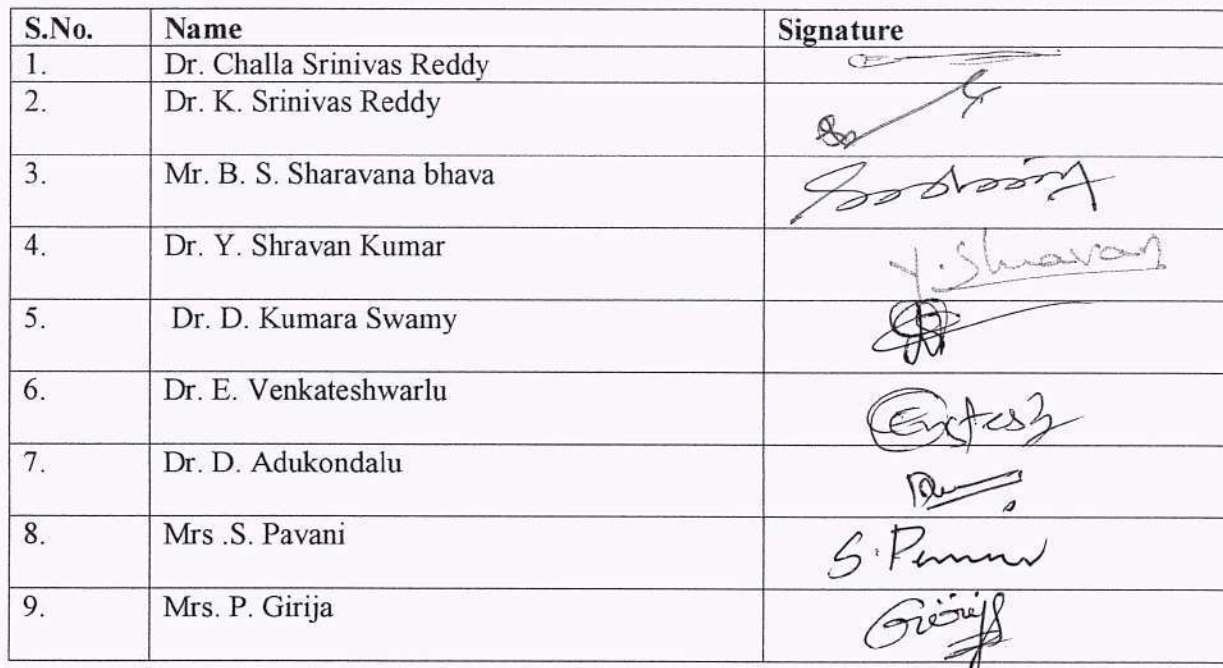 S.No. Name Signature
1. Dr. Challa Srinivas Reddy
2. Dr. K. Srinivas Reddy
3. Mr. B. S. Sharavana bhava
4. Dr. Y. Shravan Kumar Y. Shravan
5. Dr. D. Kumara Swamy
6. Dr. E. Venkateshwarlu
7. Dr. D. Adukondalu
8. Mrs .S. Pavani
9. Mrs. P. Girija Girija